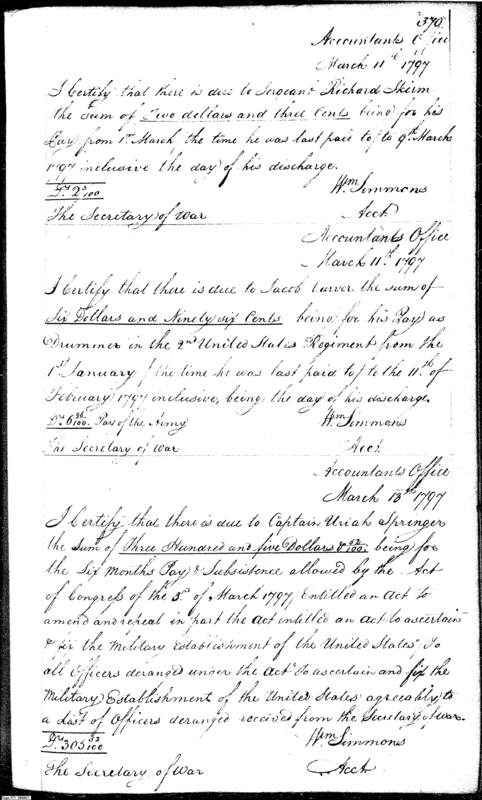 370.
Accountants Office
March 11th 1797
I Certify that there is due to Sergeant Richard Skirm
the sum of Two dollars and three Cents being for his
Pay from 1st March the time he was last paid to/ to 9th March
1797 inclusive the day of his discharge.
Drs. 2 3/100
Wm Simmons
The Secretary of War
Acct.
Accountants Office
March 11th. 1797
I Certify that there is due to Jacob Carver the sum of
Six Dollars and Ninety six Cents being for his Pay as
Drummer in the 2nd United States Regiment from the
1st January / the time he was last paid to/ to the 11th of
February 1797 inclusive, being the day of his discharge.
Drs. 6 96/100. Pay of the Army
Wm Simmons
The Secretary of War
Acct
Accountants Office
March 13th 1797
I Certify that there is due to Captain Uriah Springer
the Sum of Three Hundred and five Dollars & 52/100 being for
the Six Months Pay & Subsistence allowed by the Act
of Congress of the 3rd of March 1797, Entitled an Act to
amend and repeal in part the Act intitled an act to ascertain
& fix the Military Establishment of the United States" To
all Officers deranged under the Act "To ascertain and fix the
Military Establishment of the United States agreeably to
a List of Officers deranged received from the Secretary of War.
Drs 305 /100
Wm Simmons
The Secretary of War
Acct.